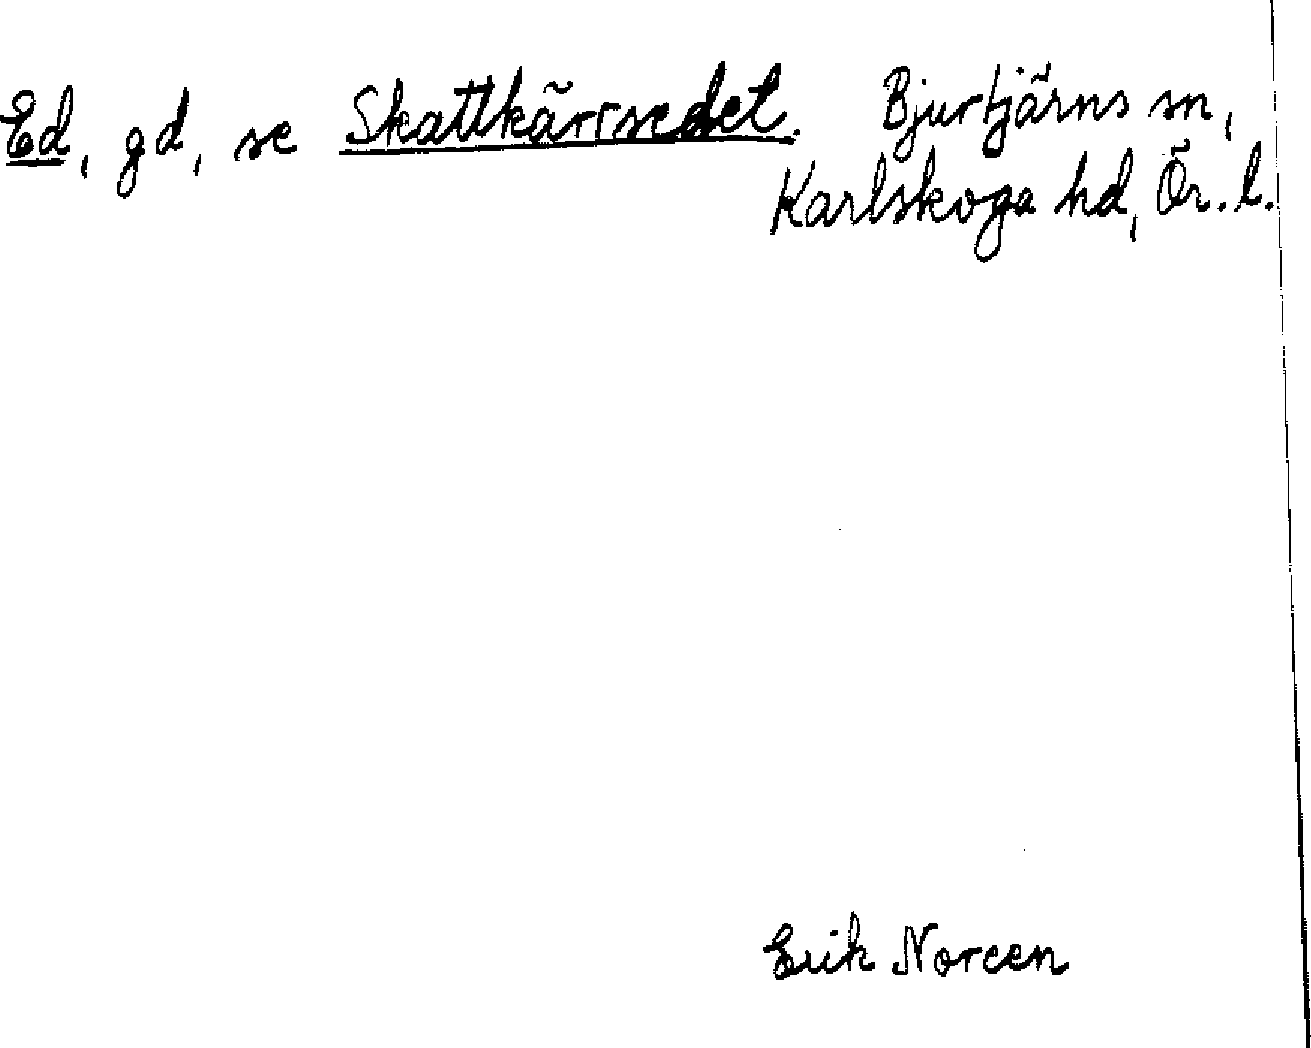 Ed, gd, se Skattkärrsedet. Bjurtjärns sn,
Karlskoga hd, Ör. l.
Erik Noreen